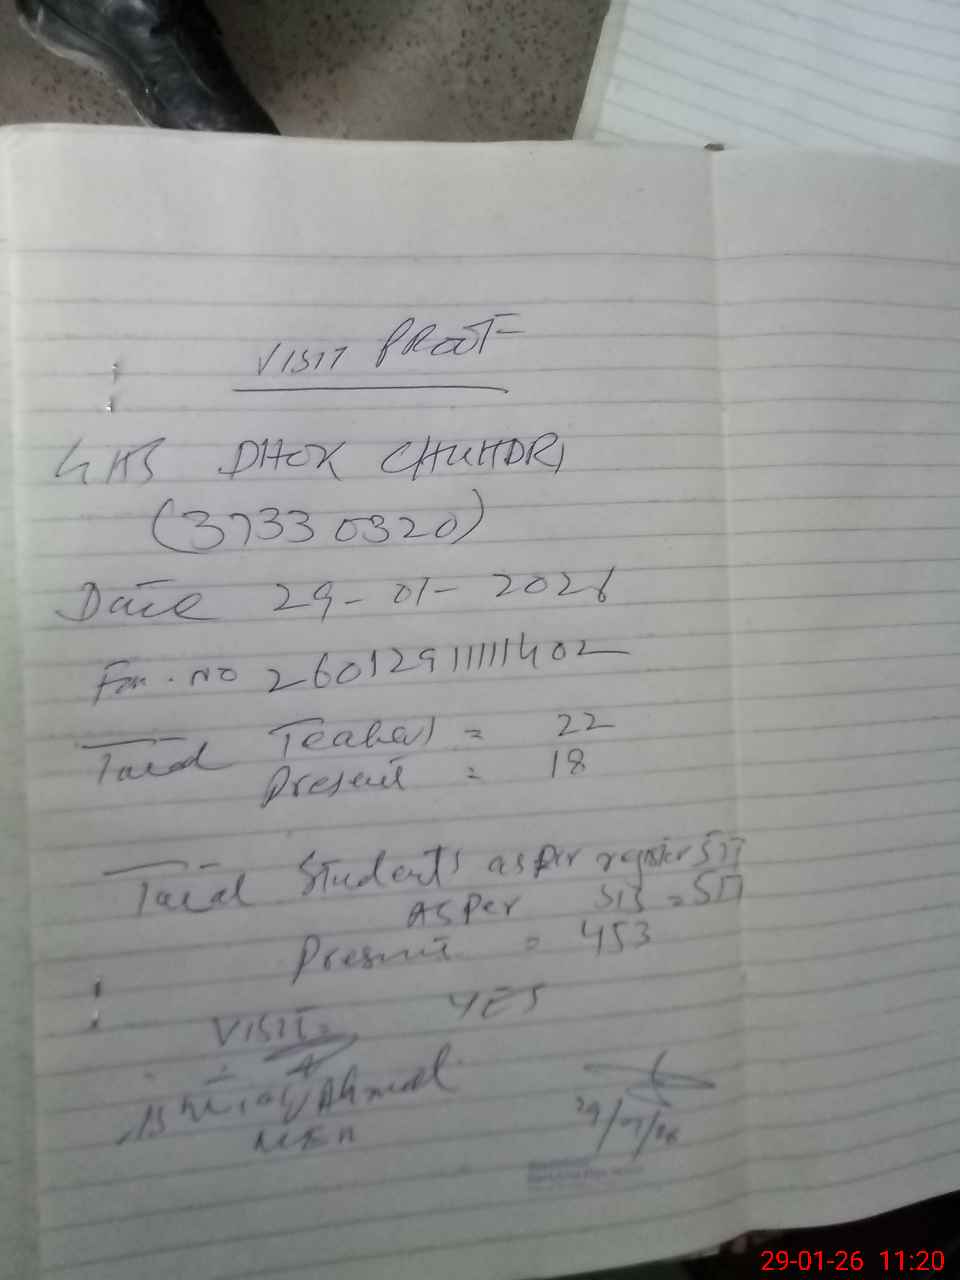 VISIT PROOF
GHS DHOK CHUHDRI
(37330320)
Date 29-01-2026
Fm. NO 2601291111402
Total Teachers = 22
Present = 18
Total Students as per register 517
AS Per SIS = 517
Present = 453
VISIT YES
Ahmad
29/01/26
29-01-26 11:20